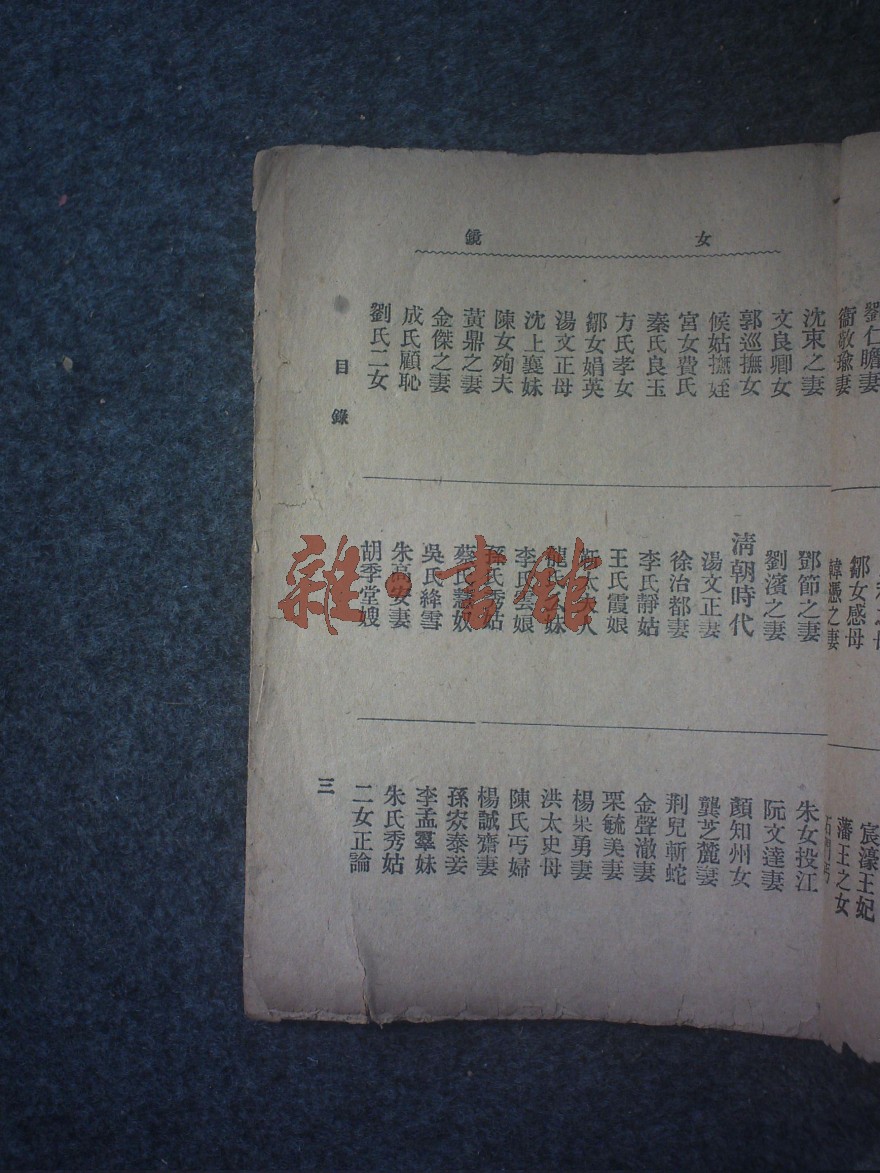 女鏡
劉仁瞻妻
衛敬瑜妻
沈束之妻
文良卿女
郭巡撫女
候姑撫姪
宮女費氏
秦氏良玉
方氏孝女
鄒女娟英
湯文正母
沈上襄妹
陳女殉夫
黃鼎之妻
金傑之妻
成氏顧恥
劉氏二女
鄒女感母
韓憑之妻
鄧節之妻
劉濱之妻
清朝時代
湯文正妻
徐治都妻
李氏靜姑
王氏霞娘
太夫人
龍氏妹
李氏雲娘
孫氏秀姑
蔡氏慧奴
吳氏絳雪
朱高安妻
胡季堂嫂
宸濠王妃
藩王之女
朱女投江
阮文達妻
顏知州女
龔芝麓妻
荆兒斬蛇
金聲澈妻
栗毓美妻
楊杲勇妻
洪太史母
陳氏丐婦
楊誠齋妻
孫泰妾
李孟羣妹
朱氏秀姑
二女正論
目錄
三
雜·書館